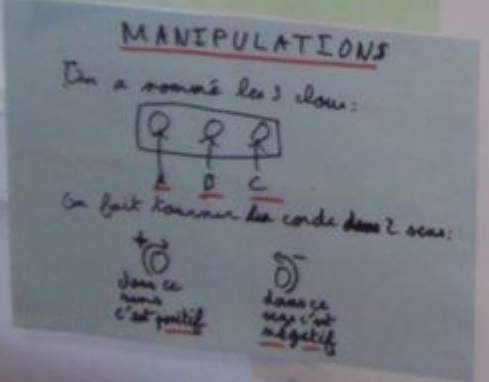 MANIPULATIONS
On a nommé les 3 clous:
A B C
On fait tourner la corde dans 2 sens:
+ -
dans ce
sens
c'est positif
dans ce
sens c'est
négatif